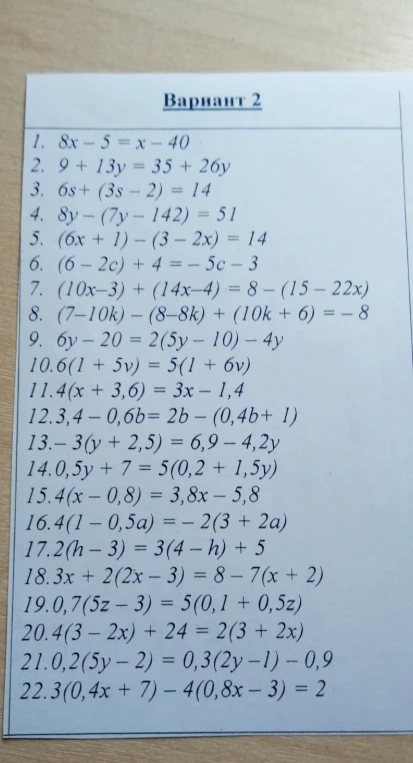 Вариант 2
1. 8x – 5 = x – 40
2. 9 + 13y = 35 + 26y
3. 6s+ (3s – 2) = 14
4. 8y – (7y – 142) = 51
5. (6x + 1) – (3 – 2x) = 14
6. (6 – 2c) + 4 = – 5c – 3
7. (10x–3) + (14x–4) = 8 – (15 – 22x)
8. (7–10k) – (8–8k) + (10k + 6) = – 8
9. 6y – 20 = 2(5y – 10) – 4y
10.6(1 + 5v) = 5(1 + 6v)
11.4(x + 3,6) = 3x – 1,4
12.3,4 – 0,6b= 2b – (0,4b+ 1)
13.– 3(y + 2,5) = 6,9 – 4,2y
14.0,5y + 7 = 5(0,2 + 1,5y)
15.4(x – 0,8) = 3,8x – 5,8
16.4(1 – 0,5a) = – 2(3 + 2a)
17.2(h – 3) = 3(4 – h) + 5
18.3x + 2(2x – 3) = 8 – 7(x + 2)
19.0,7(5z – 3) = 5(0,1 + 0,5z)
20.4(3 – 2x) + 24 = 2(3 + 2x)
21.0,2(5y – 2) = 0,3(2y –1) – 0,9
22.3(0,4x + 7) – 4(0,8x – 3) = 2